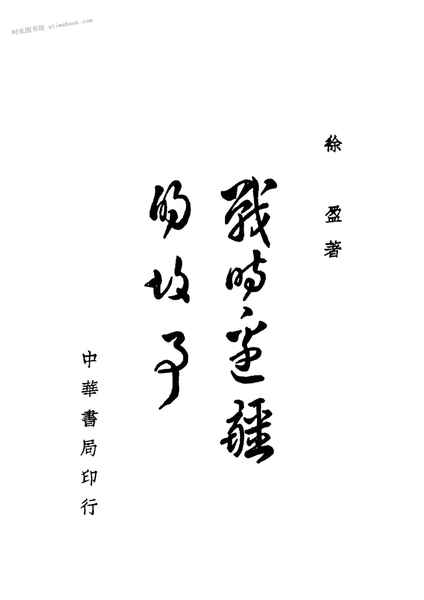 时光图书馆 stimebook.com
徐盈著
戰時邊疆
的故事
中華書局印行